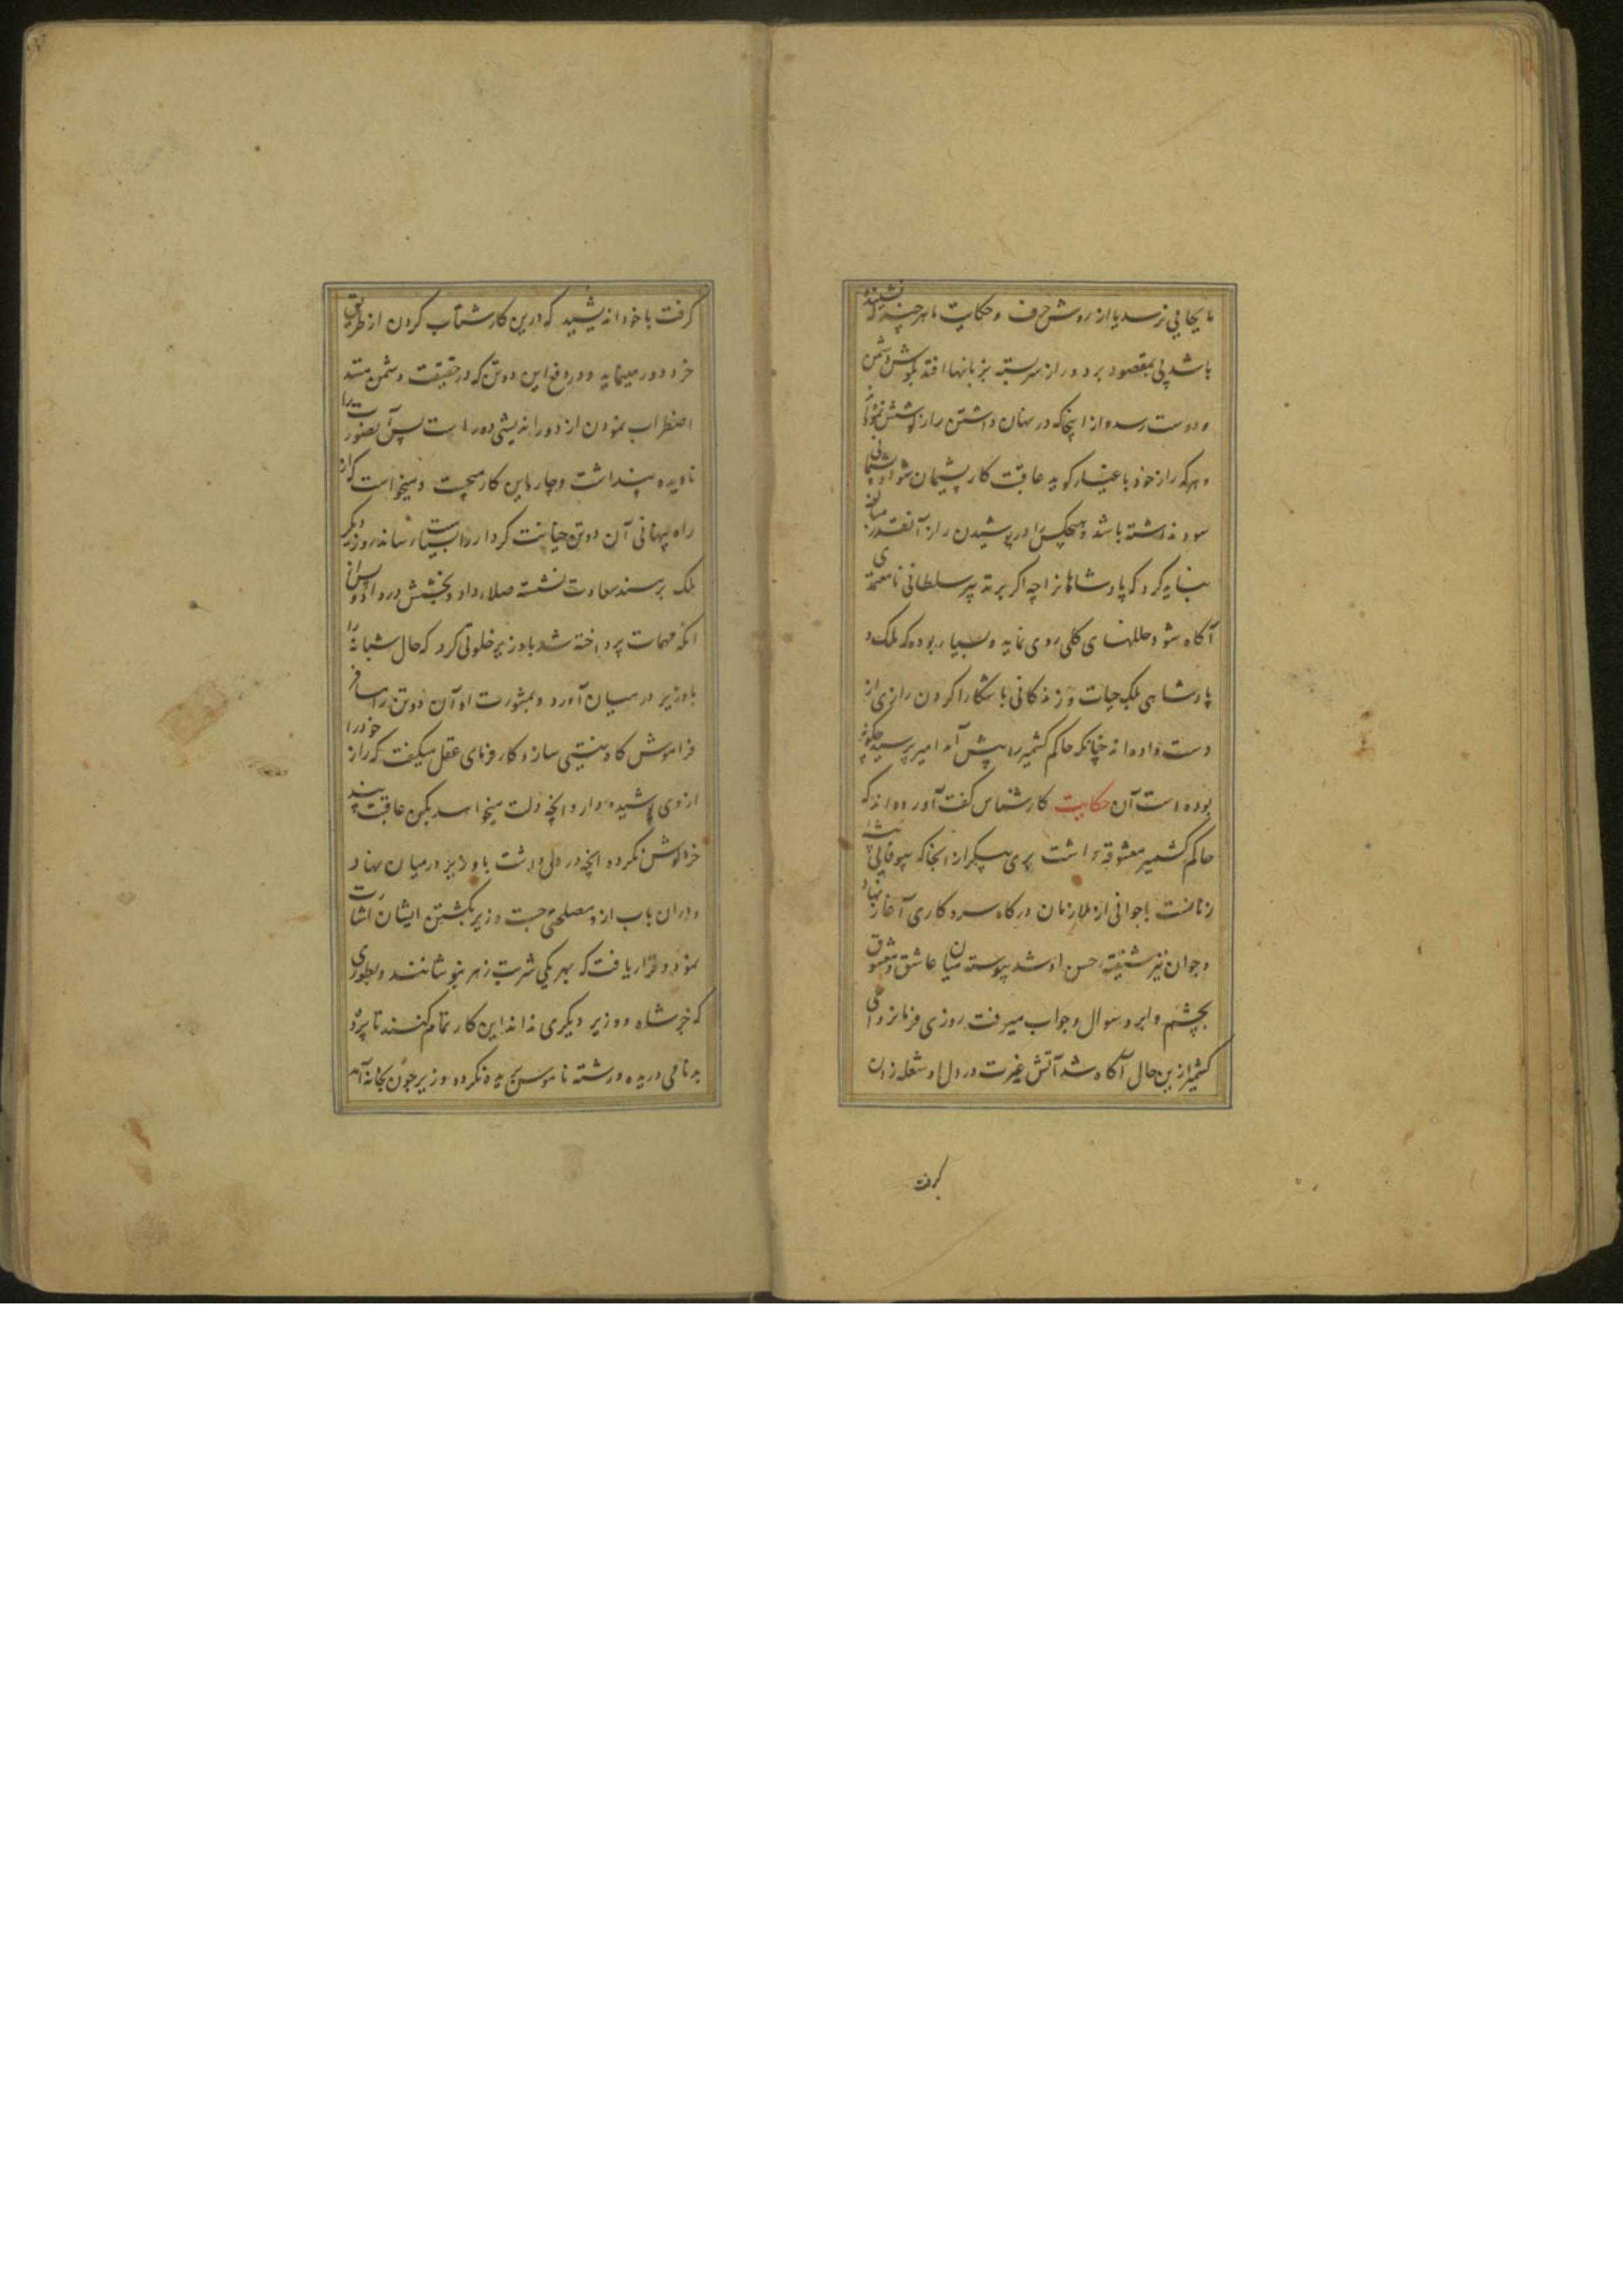 تا بجایی نرسد یا از روش حرف و حکایت ما هر چند که نشیننده
باشد پی بمقصود برد و راز سربسته بزبانها افتد بگوش دشمن
و دوست رسد و از اینجا که در نهان داشتن راز کوشش
و هر که راز خود باغیار کوید عاقبت کار پشیمان شود و پشیمانی
سود نداشته باشد و هیچکس را در پوشیدن راز آنقدر
بباید کرد که پادشاهان را چه اگر بر تدبیر سلطانی نامعتمدی
آگاه شود خللهای کلی روی نماید و بسیار بوده که ملک و
پادشاهی بلکه حیات و زندکانی باشکارا کردن رازی از
دست داده اند چنانکه حاکم کشمیر را پیش آمد امیر پرسید چکونه
بوده است آن حکایت کارشناس گفت آورده اند که
حاکم کشمیر معشوقه داشت پری پیکر از انجا که بیوفایی
زنانست با جوانی از ملازمان درکاه سر و کاری آغاز نهاد
و جوان نیز شیفته حسن او شد پیوسته میان عاشق و معشوق
بچشم و ابرو سوال و جواب میرفت روزی فرمانروای
کشمیر ازین حال آگاه شد آتش غیرت در دل او شعله زدن
گرفت
گرفت با خود اندیشید که درین کار شتاب کردن از طریق
خرد دور مینماید و در دفع این دو تن که در حقیقت دشمن منند
اضطراب نمودن از دوراندیشی دور است پس آن بصورت را
نادیده پنداشت و چاره این کار میجست و میخواست که از
راه پنهانی آن دو تن خیانت کردار را بسیاست رساند روز دیگر
ملک بر مسند سعادت نشسته صلای داد و بخشش در داد و پس از
انکه مهمات پرداخته شد با وزیر خلوتی کرد که حال شبانه را
با وزیر در میان آورد و بمشورت او آن دو تن را مسافر
فراموش کاه نیستی سازد کارفرمای عقل میگفت که راز خود را
از وی پوشیده دار و انچه دلت میخواهد بکن عاقبت پند
خرد گوش نکرده انچه در دل داشت با وزیر در میان نهاد
و دران باب ازو مصلحتی جست وزیر بکشتن ایشان اشارت
نمود و قرار یافت که بهر یکی شربت زهر بنوشانند و بطوری
که جز شاه و وزیر دیگری نداند این کار تمام کنند تا پرده
بدنامی دریده و رشته ناموس بریده نگردد وزیر چون بخانه آمد